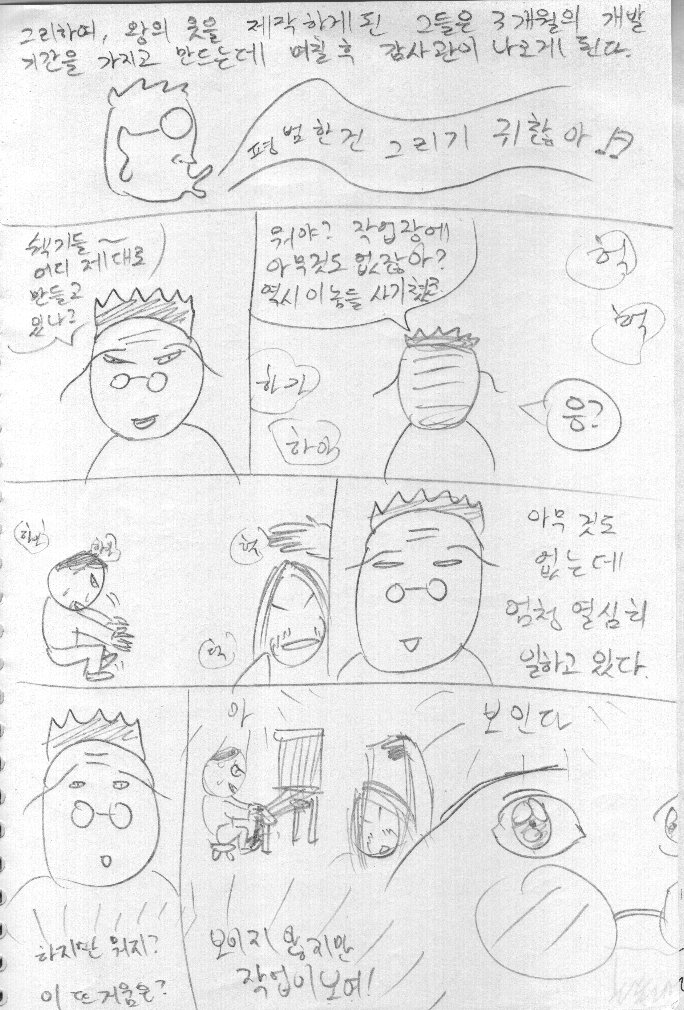 그리하여, 왕의 옷을 제작하게 된 그들은 3개월의 개발
기간을 가지고 만드는데 며칠 후 감사관이 나오게 된다.
평범한건 그리기 귀찮아
책기들~
어디 제대로
만들고
있나?
뭐야? 작업장에
아무것도 없잖아?
역시 이놈들 사기쳤군
헉
헉
하악
응?
헉
아무 것도
없는데
엄청 열심히
일하고 있다.
하지만 뭐지?
이 뜨거움은?
아
보인다
보이지 않지만
작업이 보여!